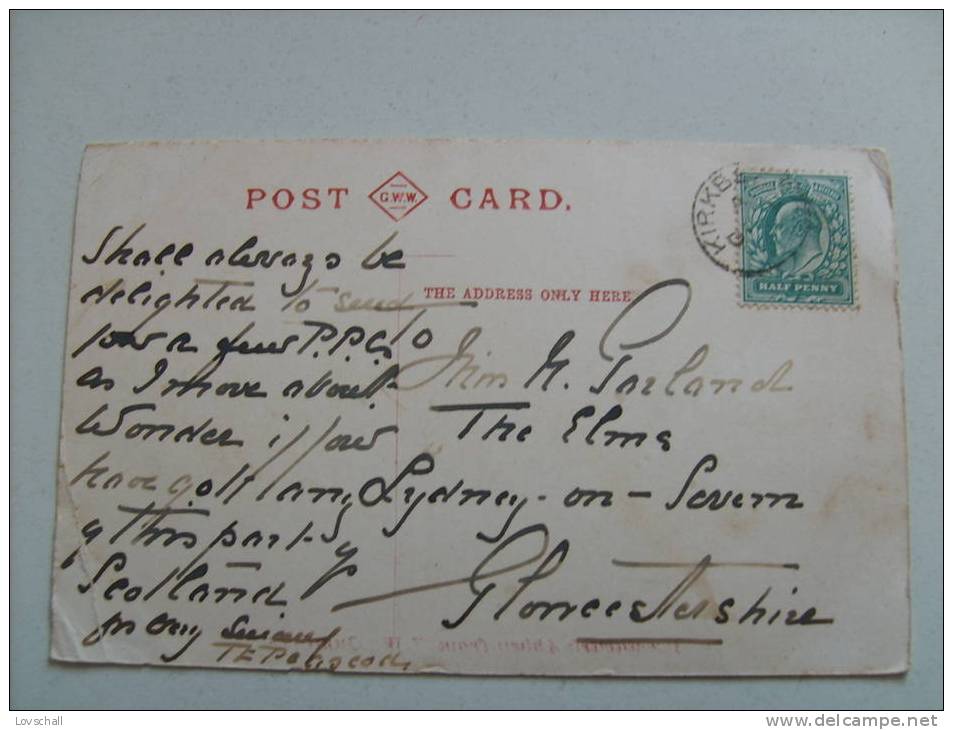 POST G.W.W. CARD.
KIRKB
HALF PENNY
THE ADDRESS ONLY HERE
Shall always be
delighted to send
you a few P.P.Cs
as I move about
Wonder if you
have got any
of this part of
Scotland
Miss M. Parland
The Elms
Lydney-on-Severn
Gloucestershire
Lovschall
www.delcampe.net